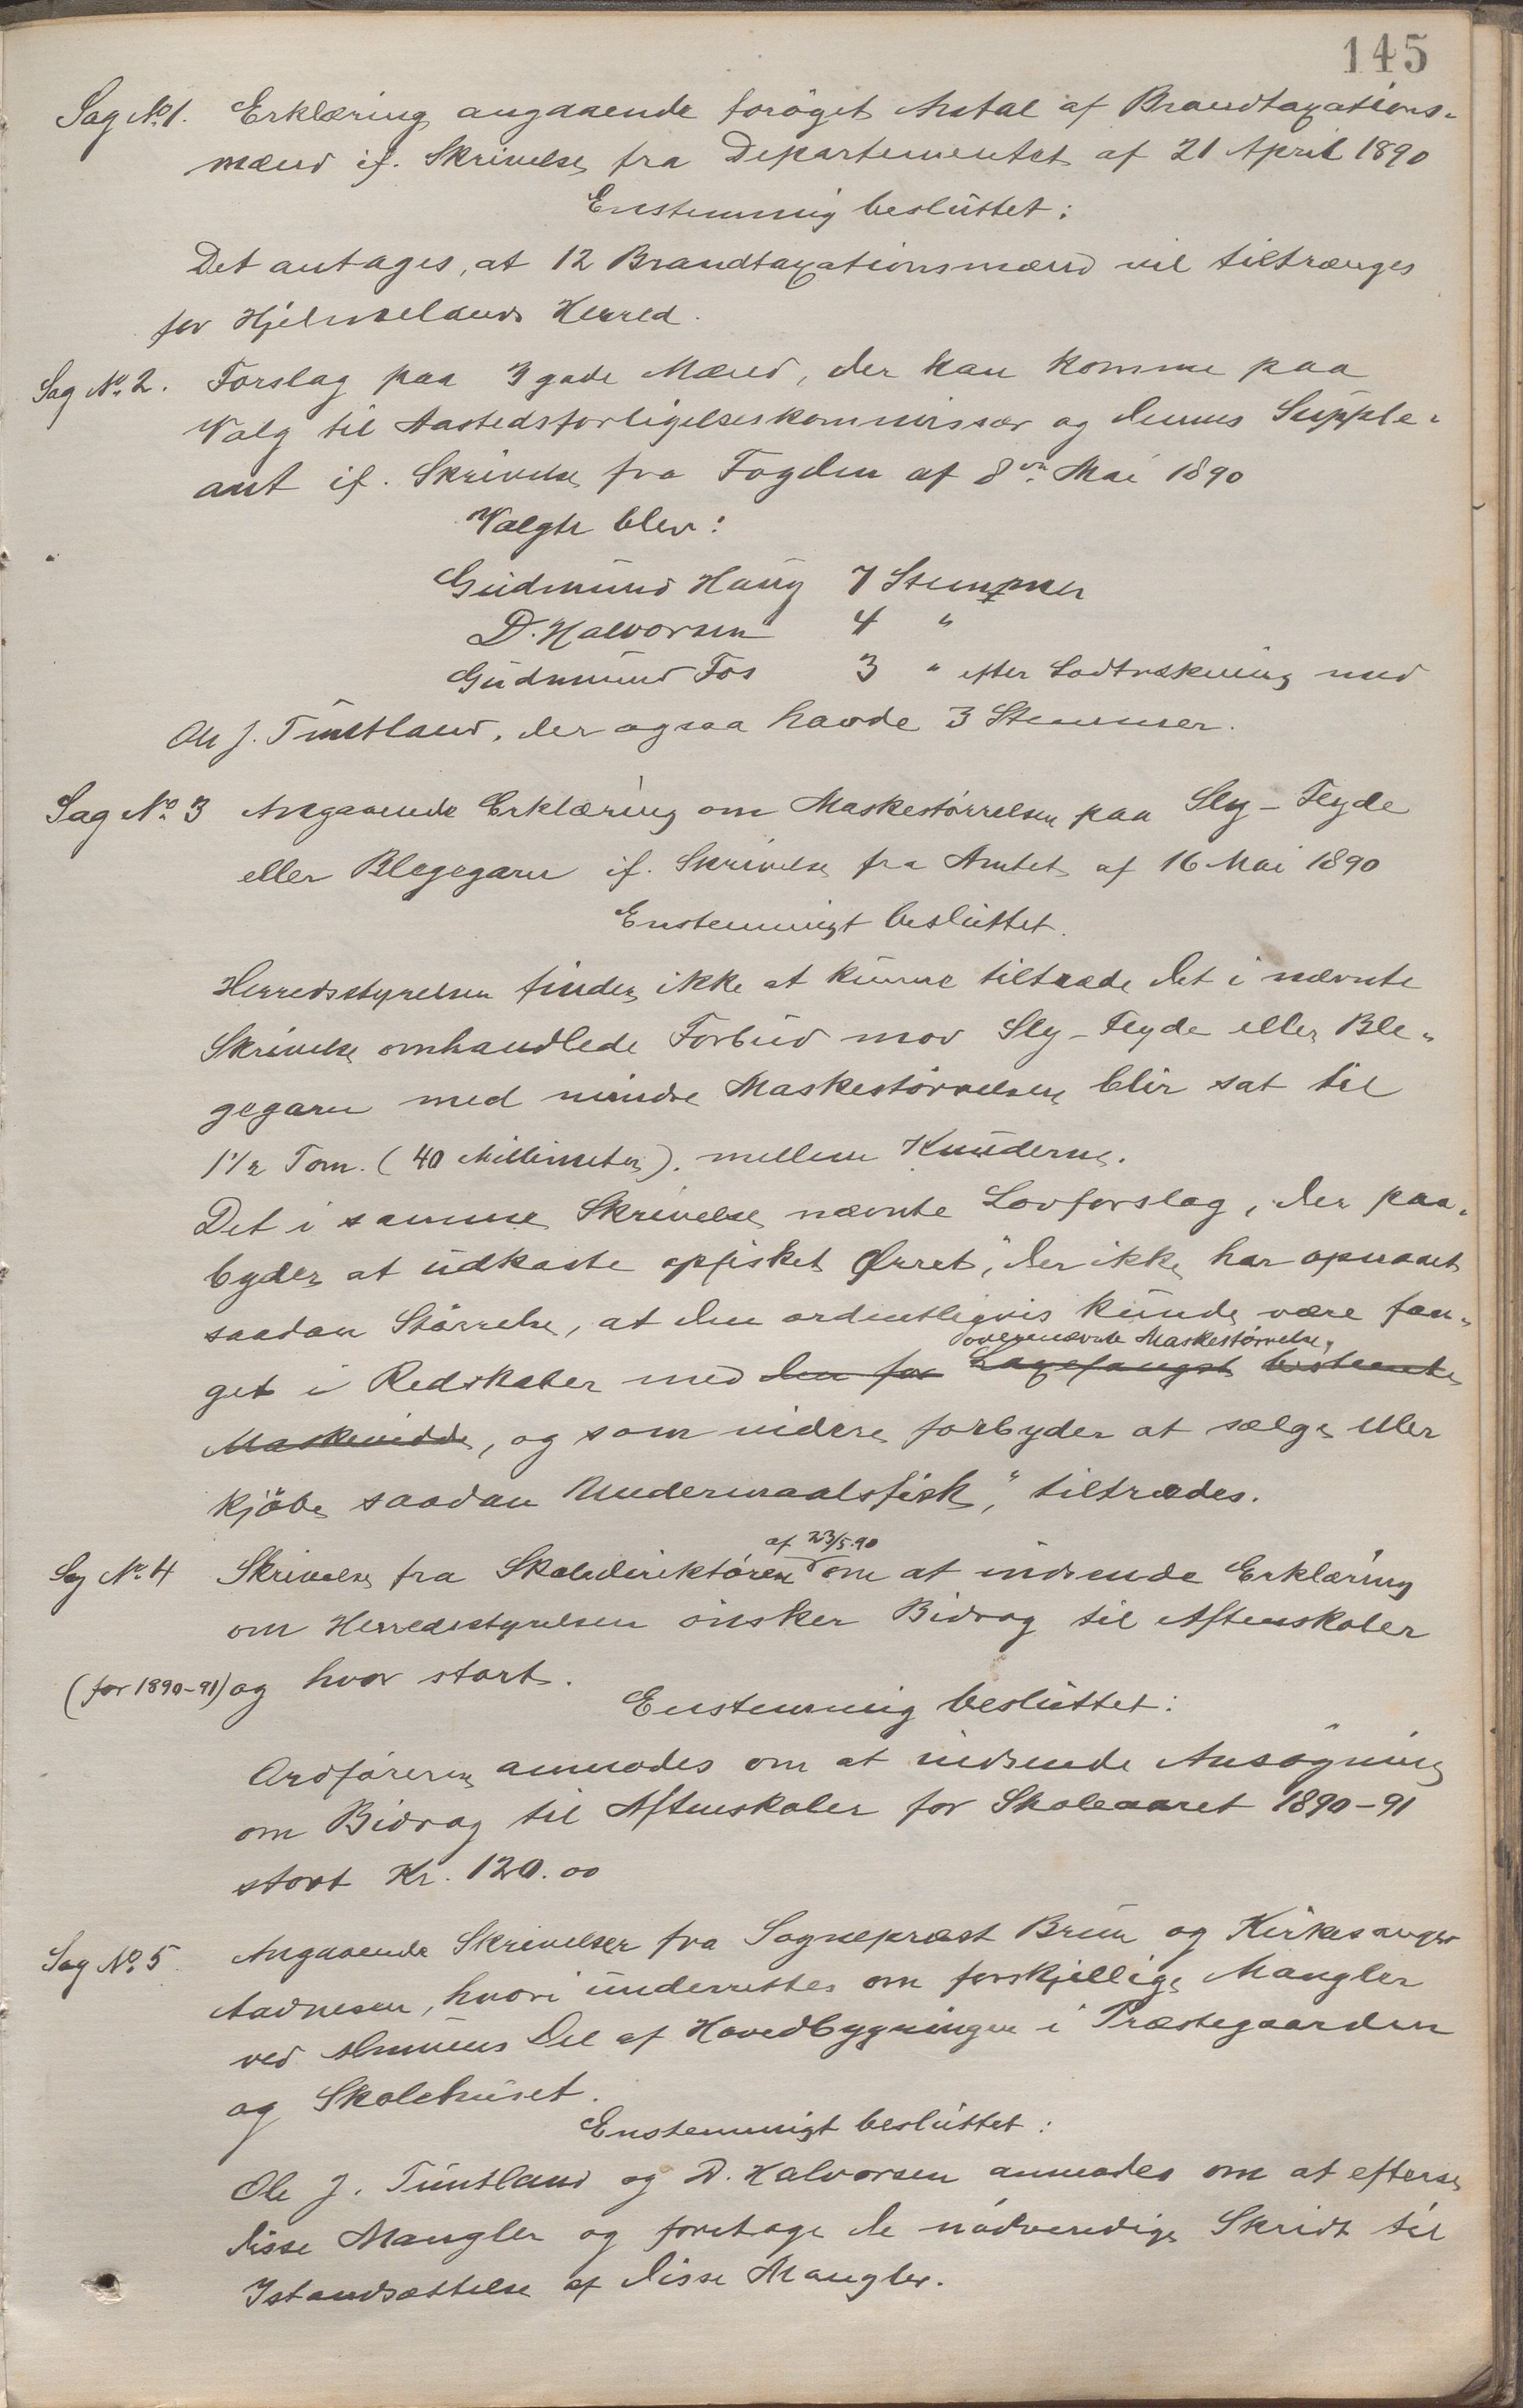 145
Sag No. 1. Erklæring angaaende forøget Antal af Brandtaxations-
mænd if. Skrivelse fra Departementet af 21 April 1890
Enstemmig besluttet:
Det antages, at 12 Brandtaxationsmænd vil tiltrænges
for Hjelmelands Herred.
Sag No. 2. Forslag paa 3 gode Mænd, der kan komme paa
Valg til Aastedsforligelseskommissær og dennes Supple-
ant if. Skrivelse fra Fogden af 8de Mai 1890
Valgte blev:
Gudmund Haug 7 Stemmer
D. Halvorsen 4 "
Gudmund Fos 3 " efter Lodtrækning med
Ole J. Tuntland, der ogsaa havde 3 Stemmer.
Sag No. 3 Angaaende Erklæring om Maskestørrelsen paa Sly-Flyde
eller Blegegarn if. Skrivelse fra Amtet af 16 Mai 1890
Enstemmigt besluttet.
Herredsstyrelsen finder ikke at kunne tiltræde det i nævnte
Skrivelse omhandlede Forbud mod Sly-Flyde eller Ble-
gegarn med mindre Maskestørrelsen blir sat til
1 1/2 Tom. (40 Millimeter). mellem Knuderne.
Det i samme Skrivelse nævnte Lovforslag, der paa-
byder at udkaste opfisket Ørret, "der ikke har opnaaet
saadan Størrelse, at den ordentligvis kunde være fan-
ovennævnte Maskestørrelse,
get i Redskaber med den for Laxefangst bestemte
Maskevidde, og som videre forbyder at sælge eller
kjøbe saadan Undermaalsfisk," tiltrædes.
af 23/5.90
Sag No. 4 Skrivelse fra Skoledirektøren om at indsende Erklæring
om Herredsstyrelsen ønsker Bidrag til Aftenskoler
(for 1890-91) og hvor stort.
Enstemmig besluttet:
Ordføreren anmodes om at indsende Ansøgning
om Bidrag til Aftenskoler for Skoleaaret 1890-91
stort Kr. 120.00
Sag No. 5. Angaaende Skrivelser fra Sogneprest Bruun og Kirkesanger
Aadnesen, hvori underrettes om forskjellige Mangler
ved Almuens Del af Hovedbygningen i Præstegaarden
og Skolehuset.
Enstemmigt besluttet:
Ole J. Tuntland og D. Halvorsen anmodes om at efterse
disse Mangler og foretage de nødvendige Skridt til
Istandsættelse af disse Mangler.